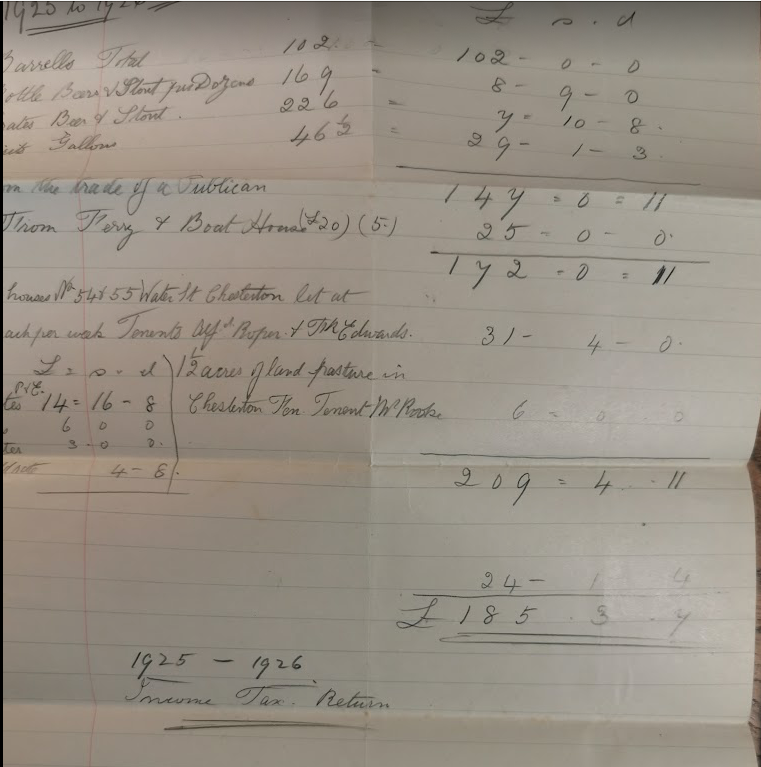 1925 to 192
£ s. d
Barrells Total 102 - 102 - 0 - 0
Bottle Beer & Stout per Dozens 169 - 8 - 9 - 0
rates Beer & Stout. 226 = 7 = 10 - 8.
its Gallons 46 ½ = 29 - 1 - 3
om the trade of a Publican 147 = 0 = 11
From Ferry & Boat House (£20) (5-) 25 - 0 - 0.
172 - 0 = 11
houses No 54 & 55 Water St Chesterton let at
each per week Tenents Alfd Roper. & Edwards. 31 - 4 - 0.
£ = s. d 1½ acres of land pasture in
tes 14 = 16 - 8 Chesterton Fen Tenent Mr Rooke 6 = 0 0
6 0 0
tes 3 - 0 0.
4 - 8. 209 = 4 . 11
24 - 1 4
£ 185 . 3 . 7
1925 - 1926.
Income Tax. Return